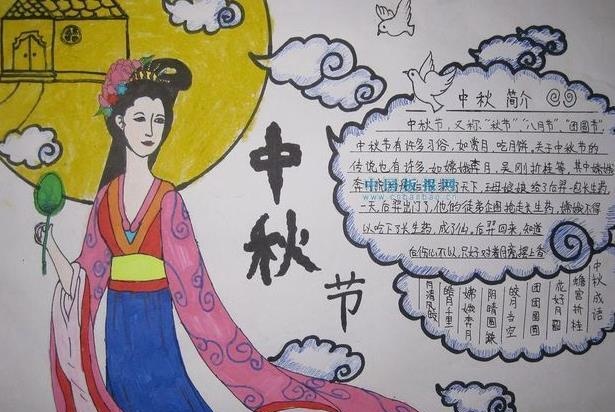 中秋节
中秋简介
中秋节,又称"秋节""八月节""团圆节"
中秋节有许多习俗,如赏月、吃月饼,关于中秋节的
传说也有许多,如嫦娥奔月,吴刚折桂等,其中嫦娥
中国板报网
一天,后羿出门了,他的徒弟企图抢走长生药,嫦娥不得
以吃下了长生药,成了仙。后羿回来,知道
后伤心不以,只好对着月亮摆上香
中秋成语
蟾宫折桂
花好月圆
团团圆圆
皓月当空
阴晴圆缺
嫦娥奔月
皓月千里